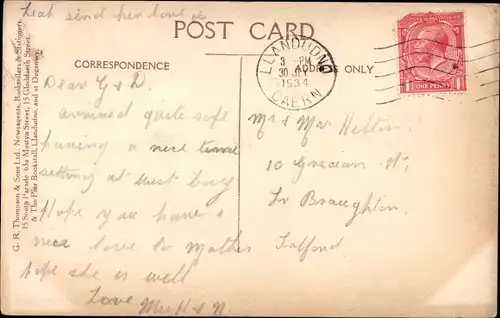 Leah send her love
POST CARD
CORRESPONDENCE
ADDRESS ONLY
LLANDUDNO
3 - PM
30 JLY
1934
CAERN
ONE PENNY
G. R. Thompson & Sons Ltd., Newsagents, Booksellers & Stationers,
15 South Parade 63a Mostyn Street, 15 Gloddaeth Street,
& The Pier Bookstall, Llandudno, and at Deganwy.
Dear G & D.
arrived quite safe
having a nice time
sitting at west bay
Hope you have a
nice love to Mother
hope she is well
Love Mr H & N.
Mr & Mrs
10 Grecian St,
Lr Broughton
Salford